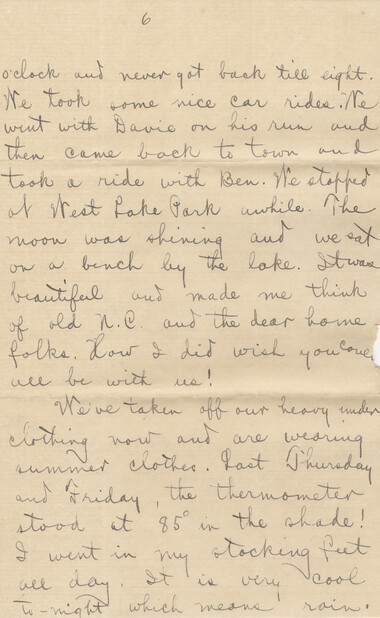 6
o'clock and never got back till eight.
We took some nice car rides. We
went with Davie on his run and
then came back to town and
took a ride with Ben. We stopped
at West Lake Park awhile. The
moon was shining and we sat
on a bench by the lake. It was
beautiful and made me think
of old N.C. and the dear home-
folks. How I did wish you could
all be with us!
We've taken off our heavy under
clothing now and are wearing
summer clothes. Last Thursday
and Friday, the thermometer
stood at 85° in the shade!
I went in my stocking feet
all day. It is very cool
to-night which means rain.